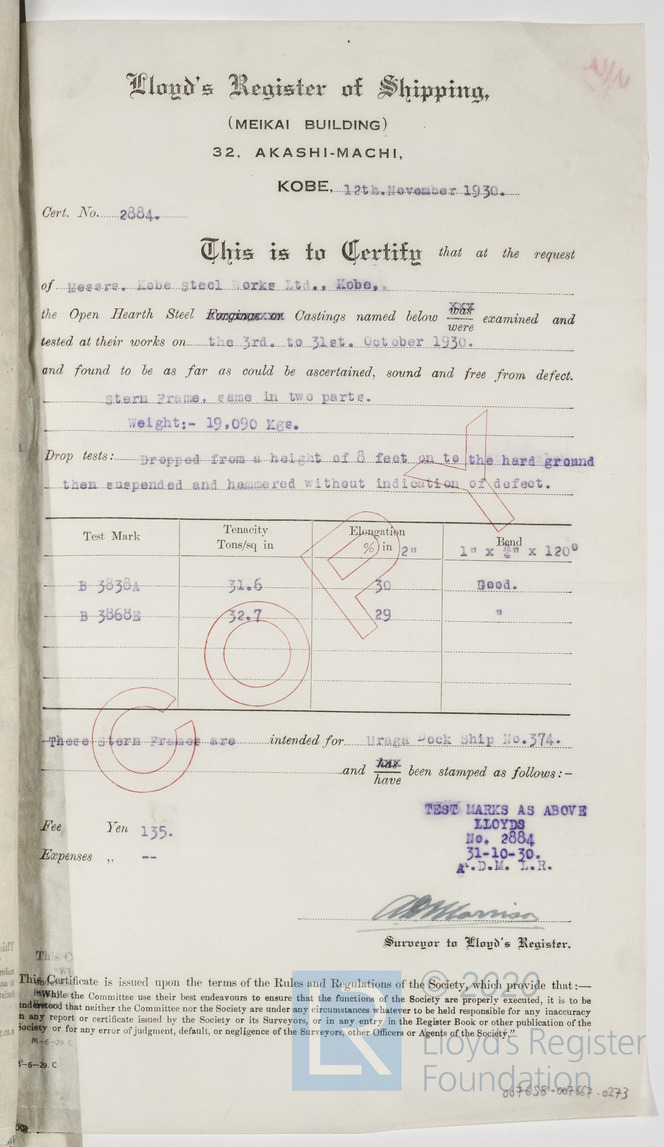 Lloyd's Register of Shipping,
(MEIKAI BUILDING)
32, AKASHI-MACHI,
KOBE, 12th.November 1930.
Cert. No. 2884.
This is to Certify that at the request
of Messrs. Kobe Steel Works Ltd., Kobe,
the Open Hearth Steel Forgings or Castings named below was were examined and
tested at their works on the 3rd. to 31st. October 1930.
and found to be as far as could be ascertained, sound and free from defect.
Stern Frame, same in two parts.
Weight:- 19,090 Kgs.
Drop tests: Dropped from a height of 8 feet on to the hard ground
then suspended and hammered without indication of defect.
Test Mark Tenacity Tons/sq in Elongation % in 2" Bend 1" x ¾" x 120°
B 3838A 31.6 30 Good.
B 3868E 32.7 29 "
COPY
These Stern Frames are intended for Uraga Dock Ship No.374.
and has have been stamped as follows:-
TEST MARKS AS ABOVE
LLOYDS
No. 2884
31-10-30.
A.D.M. L.R.
Fee Yen 135.
Expenses „ --
ADMorrison
Surveyor to Lloyd's Register.
This Certificate is issued upon the terms of the Rules and Regulations of the Society, which provide that:—
"While the Committee use their best endeavours to ensure that the functions of the Society are properly executed, it is to be
understood that neither the Committee nor the Society are under any circumstances whatever to be held responsible for any inaccuracy
in any report or certificate issued by the Society or its Surveyors, or in any entry in the Register Book or other publication of the
Society or for any error of judgment, default, or negligence of the Surveyors, other Officers or Agents of the Society."
© 2020
LR
Lloyd's Register
Foundation
007658-007667-0273